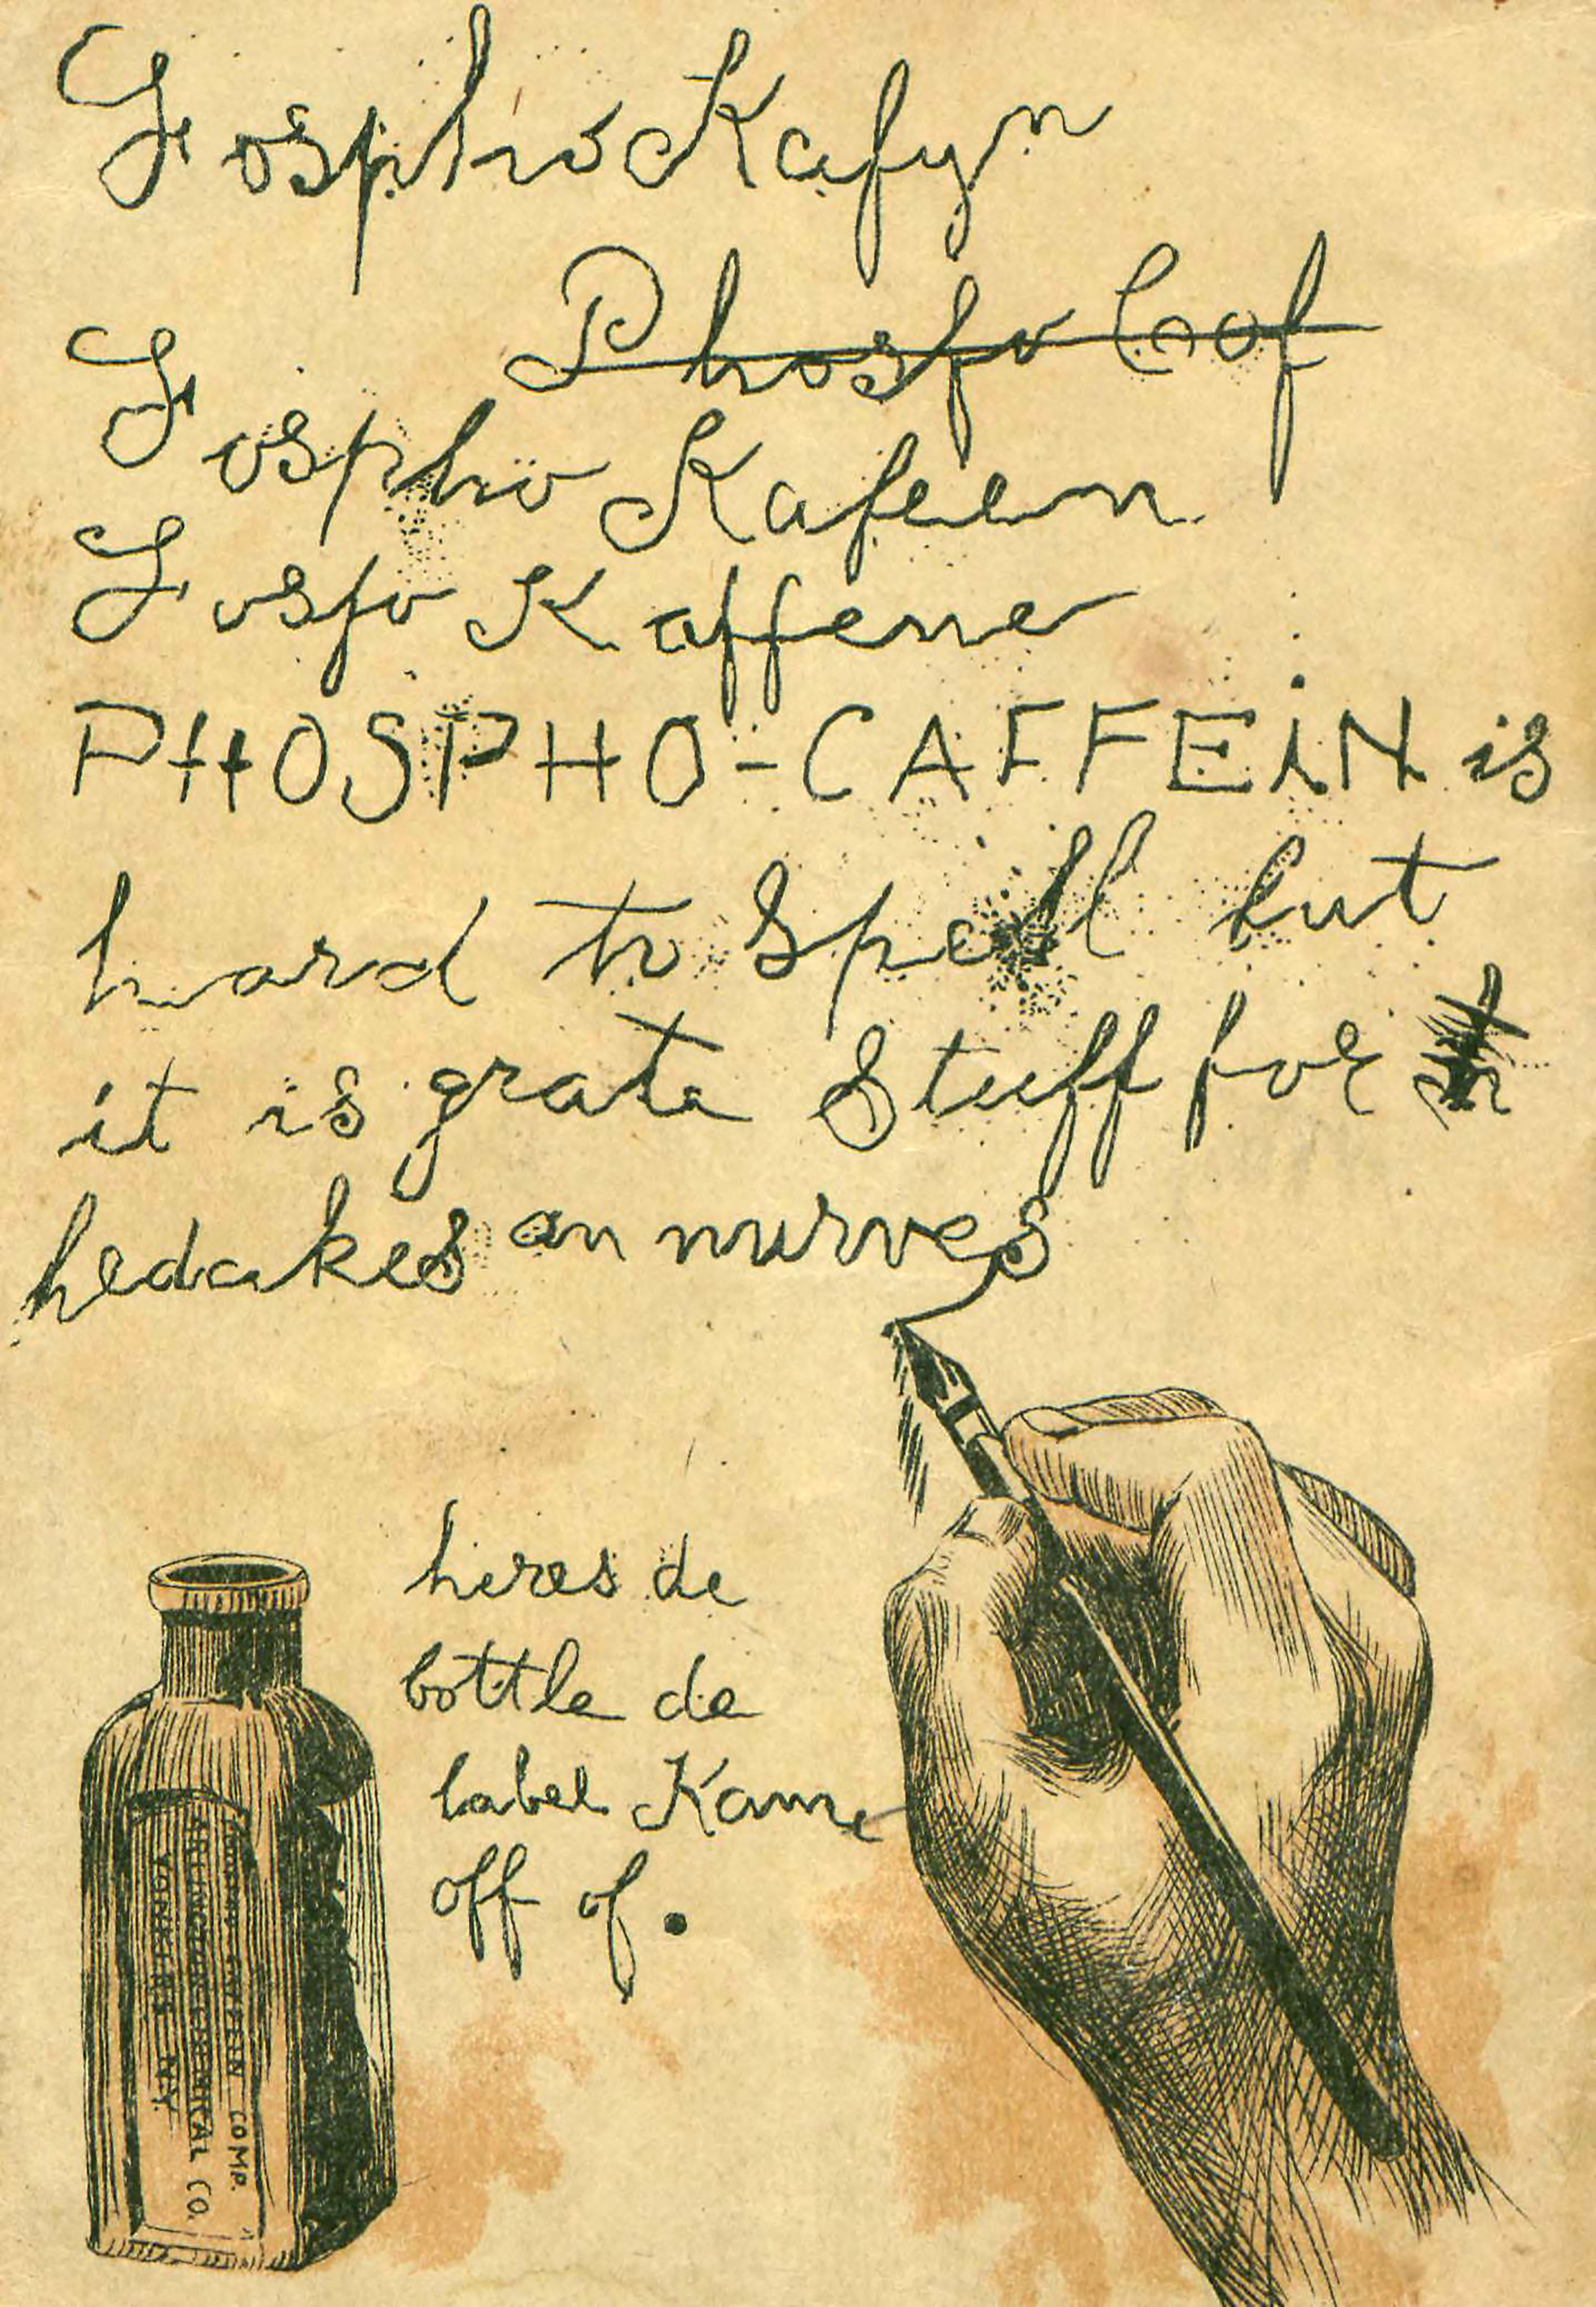 Fospho Kafyn
Phosfo Cof
Fospho Kafeen
Fosfo Kaffene
PHOSPHO-CAFFEiN is
hard to Spell but
it is grate Stuff for
hedakes an nurves
heres de
bottle de
label Kame
off of.
CAFFEIN COMP.
ARLINGTON CHEMICAL CO.
YONKERS N.Y.